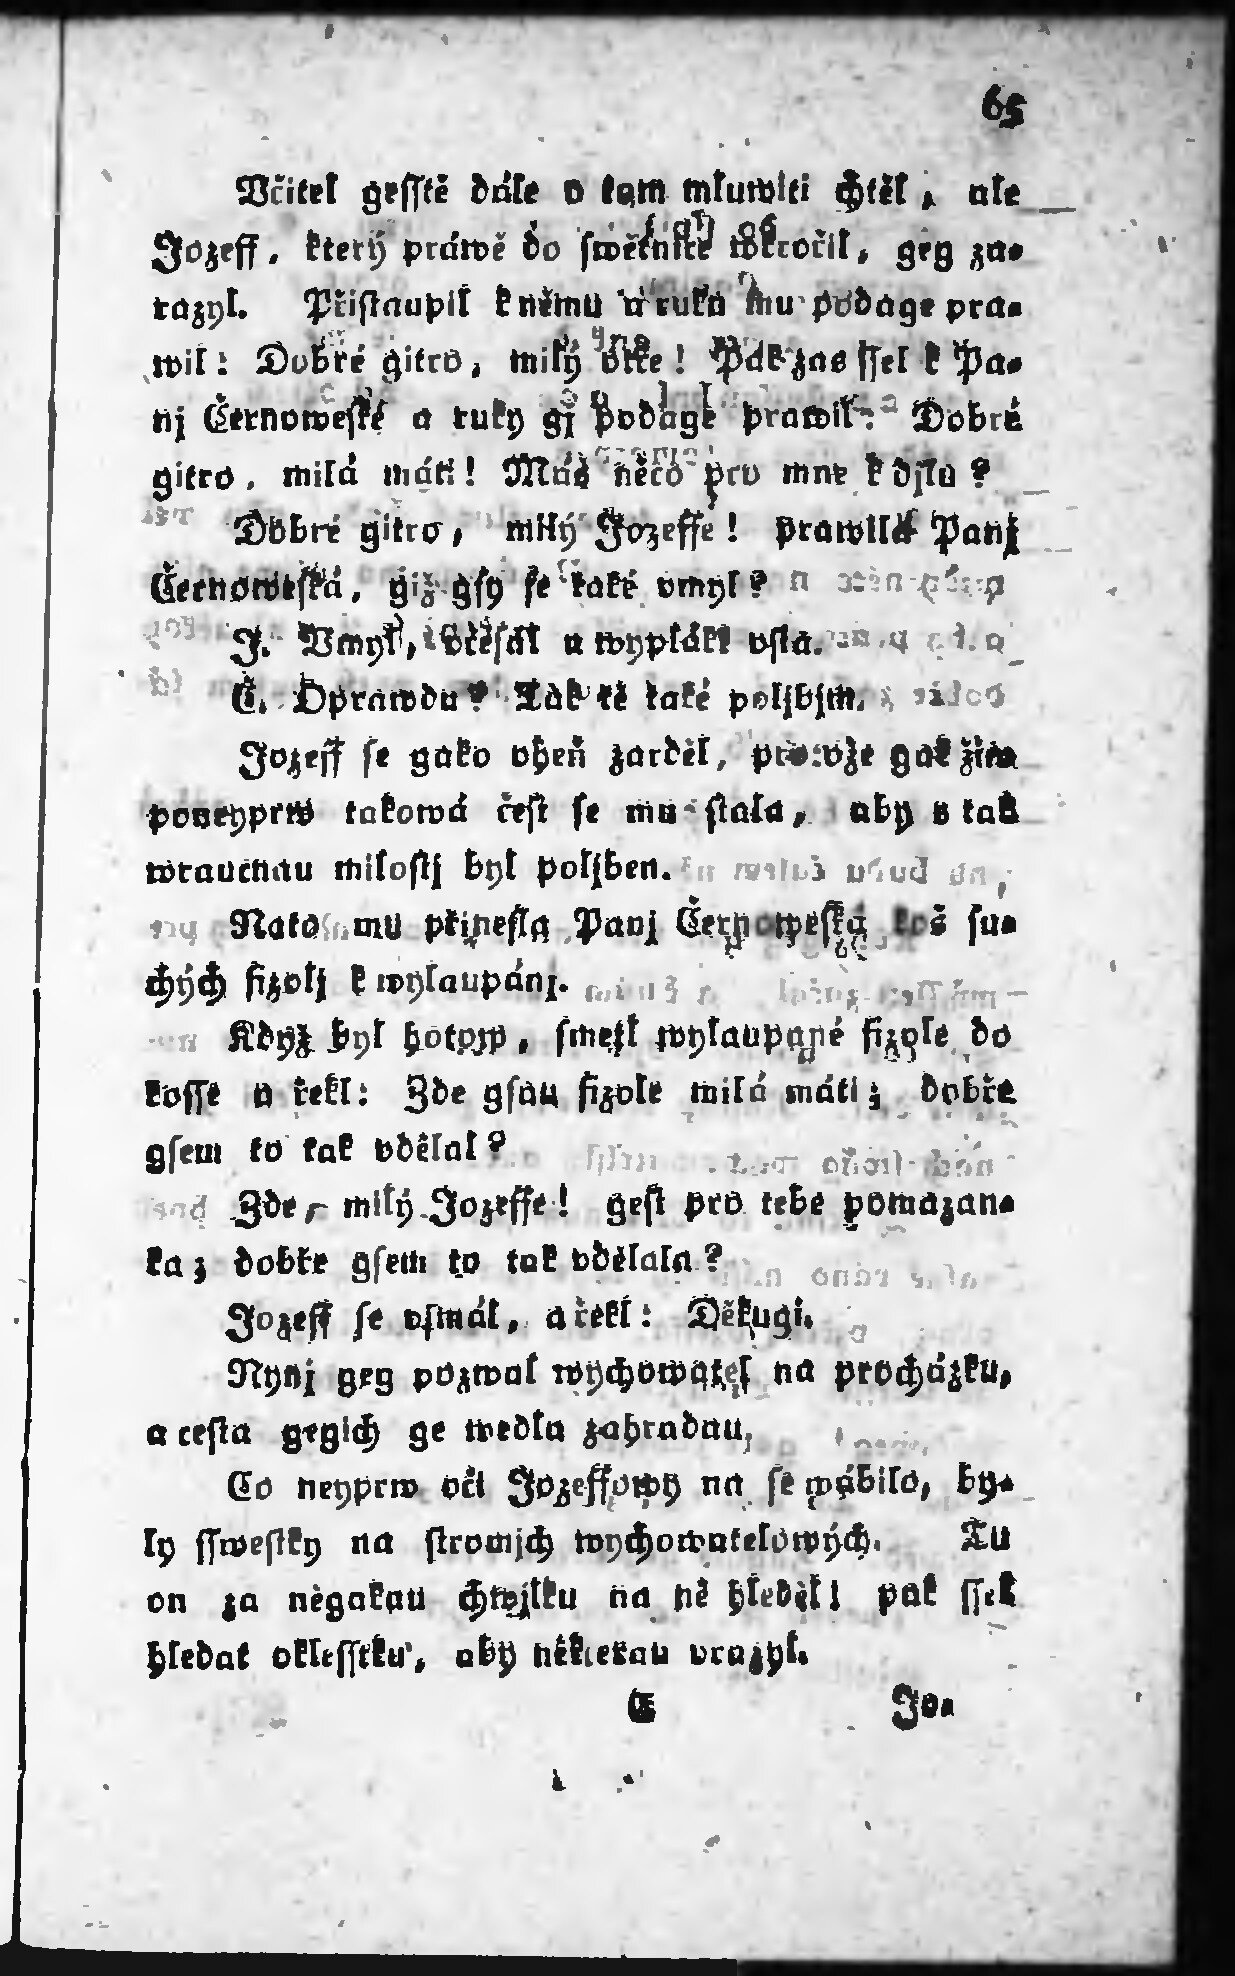 65
Včitel gesstě dále o tom mluwiti chtěl, ale
Jozeff, který práwě do swětnice wkročil, geg za-
razyl. Přistaupil k němu a ruku mu podage pra-
wil: Dobré gitro, milý otče! Pak zas ssel k Pa-
nj Černoweské a ruky gj podage prawil: Dobré
gitro, milá máti! Máš něco pro mne k djlu?
Dobré gitro, milý Jozeffe! prawila Panj
Černoweská, giž gsy se také vmyl?
J. Vmyl, včesal a wyplákl vsta.
Č. Oprawdu? Tak tě také poljbjm.
Jozeff se gako oheň zarděl, protože gak žiw
poneyprw takowá čest se mu stala, aby s tak
wrauchau milostj byl poljben.
Nato mu přinesla Panj Černoweská koš su-
chých fizolj k wylaupánj.
Když byl hotow, smetl wylaupané fizole do
kosse a řekl: Zde gsau fizole milá máti; dobře
gsem to tak vdělal?
Zde, milý Jozeffe! gest pro tebe pomazan-
ka; dobře gsem to tak vdělala?
Jozeff se vsmál, a řekl: Děkugi.
Nynj geg pozwal wychowatel na procházku,
a cesta gegich ge wedla zahradau,
Co neyprw oči Jozeffowy na se wábilo, by-
ly sswestky na stromjch wychowatelowých. Tu
on za něgakau chwjlku na ně hleděl; pak ssel
hledat oklesstku, aby některau vrazyl.
E Jo-